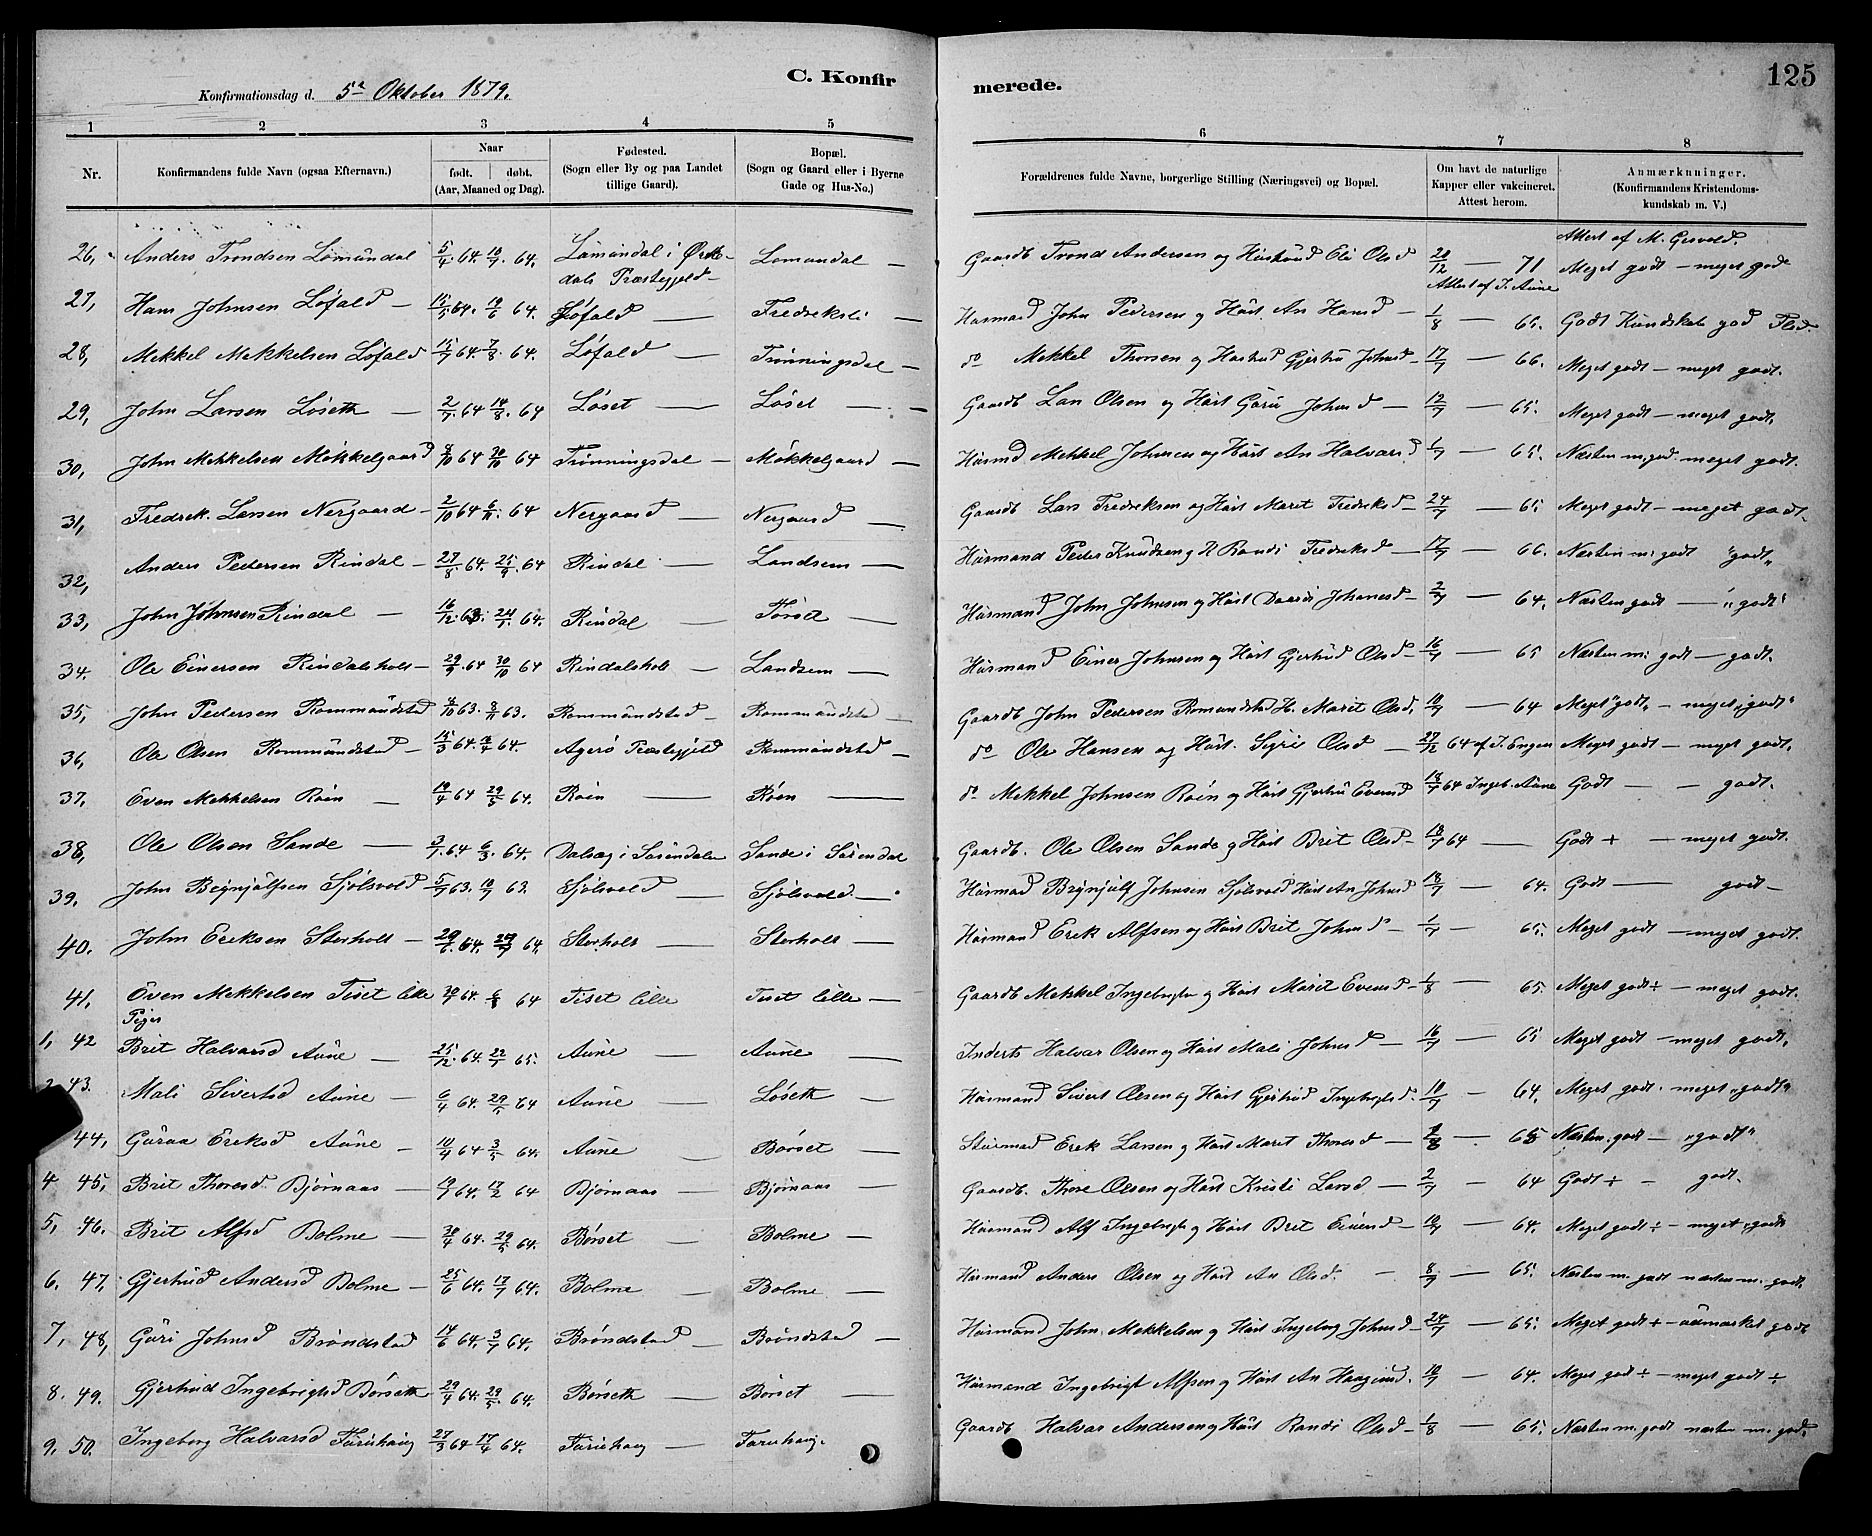 C. Konfirmerede. 125
Konfirmationsdag d. 5te Oktober 1879.
1 2 3 4 5 6 7 8
Nr. Konfirmandens fulde Navn (ogsaa Efternavn). Naar født. døbt. (Aar, Maaned og Dag). Fødested. (Sogn eller By og paa Landet tillige Gaard). Bopæl. (Sogn og Gaard eller i Byerne Gade og Hus-No.) Forældrenes fulde Navne, borgerlige Stilling (Næringsvei) og Bopæl. Om havt de naturlige Kapper eller vakcineret. Attest herom. Anmærkninger. (Konfirmandens Kristendomskundskab m. V.)
26, Anders Trondsen Lomundal 5/4 64. 10/7 64. Lomundal i Ørkedals Præstegjeld Lomundal Gaardb Trond Andersen og Hustrud Eli Olsd 20/12 71 Attest af M. Gesvold. Meget godt - meget godt
27, Hans Johnsen Løfald 15/5 64. 19/6 64. Løfald Fredriksli Husmand John Pedersen og Hust An Hansd Attest af I. Aune 1/8 65. Godt Kundskab god Flid.
28, Mekkel Mekkelsen Løfald 15/7 64. 7/8 64. Løfald Trønningsdal do Mekkel Thoresen og Hustrud Gjertru Johnsd 17/7 66. Meget godt - meget godt.
29, John Larsen Løseth 2/7 64 14/8 64 Løset Løset Gaardb Lars Olsen og Hust Guru Johnsd 12/7 65. Meget godt - meget godt,
30, John Mekkelsen Mokkelgaard 8/10 64 30/10 64 Trønningsdal Mokkelgaard Husmd Mekkel Johnsen og Hust An Halvarsd 1/7 65. Næsten m. god. meget godt.
31, Fredrek Larsen Nergaard 2/10 64 6/11 64 Nergaard Nergaard Gaardb Lars Fredreksen og Hust Maret Fredreksd 24/7 65 Meget godt - meget godt
32, Anders Pedersen Rindal 27/8 64. 25/9 64 Rindal Landsem Husmand Peder Knudsen og H Randi Fredriksd 17/7 66. Næsten m: godt "godt"
33, John Johnsen Rindal 16/12 63. 24/1 64. Rindal Torset Husmand John Johnsen og Hust Daardi Johnesd 2/7 64. Næsten godt "godt"
34. Ole Einersen Rindalsholt 29/9 64 30/10 64 Rindalsholt Landsem Husmand Einer Johnsen og Hust Gjertrud Olsd 16/7 65 Næsten m: godt - godt.
35, John Pedersen Rommundstad 4/10 63. 8/11 63. Rommundstad Rommundstad Gaardb John Pedersen Romundstad H. Marit Olsd. 10/7 64 Meget "godt" - meget "godt"
36, Ole Olsen Rommundstad 15/3 64. 4/4 64. Agerø Præstegjeld Rommundstad do Ole Hansen og Hust. Sigri Olsd 27/12 64 af I. Engen Meget godt - meget godt.
37, Even Mekkelsen Røen 19/4 64 29/5 64. Røen Røen do Mekkel Johnsen Røen og Hust Gjertru Evensd 18/7 64 Ingeb. Aune Godt godt.
38, Ole Olsen Sande 3/1 64 6/3 64. Dalsæg i Surendalen Sande i Surendal Gaardb. Ole Olsen Sande og Hust Brit Olsd 18/7 64 Godt + meget godt.
39. John Begnjulfsen Sjølsvold 5/7 63. 10/7 63. Sjølsvold Sjølsvold Husmand Brynjulf Johnsen Sjølsvold Hust An Johnsd 18/7 64. Godt godt
40. John Eriksen Storholt 20/6 64. 24/7 64. Storholt Storholt Husmand Erek Alfsen og Hust Brit Johnsd 1/7 65. Meget godt - meget godt.
41, Even Mekkelsen Tiset lille 30/7 64. 6/8 64 Tiset lille Tiset lille Gaardb Mekkel Ingebregts og Hust Marit Evensd 1/8 65. Meget godt ÷ - meget godt.
Piger
1, 42 Brit Halvarsd Aune 25/12 64. 22/1 65. Aune Aune Inderts Halvar Olsen og Hust Mali Johnsd 16/7 65 Meget godt - meget godt.
2 43. Mali Sivertsd Aune 6/4 64. 29/5 64 Aune Løseth Husmand Sivert Olsen og Hust Gjertrud Ingebregtsd. 10/7 64. Meget godt - meget "godt"
44, Guraa Ereksd Aune 10/4 64 3/5 64. Aune Børset Husmand Erek Larsen og Hust Maret Thoresd 1/8 65 Næsten godt - "godt"
4 45, Brit Thoresd Bjørnaas 19/1 64. 17/2 64 Bjørnaas Bjørnaas Gaardb. Thore Olsen og Hust Kristi Larsd 2/7 64 Godt + - godt.
5, 46. Brit Alfsd Bolme 30/4 64. 29/5 64. Børset Bolme Husmand Alf Ingebregts og Hust Brit Einersd 10/7 64. Meget godt ÷ - meget "godt
6, 47. Gjertrud Andersd Bolme 25/6 64. 17/7 64. Bolme Bolme Husmand Anders Olsen og Hust An Olsd. 8/7 65. Næsten m. godt næsten m. godt.
7, 48, Guri Johnsd Brøndstad 14/6 64. 3/7 64. Brøndstad Brøndstad Husmand John Mekkelsen og Hust Ingeborg Johnsd 24/7 65. Meget godt + - udmærket godt
8. 49. Gjertrud Ingebrigtsd Børseth 29/4 64. 29/5 64. Børseth Børset Husmand Ingebrigt Alfsen og Hust An Haagensd. 10/7 64. Meget god ÷ - meget godt ÷
9, 50. Ingeborg Halvarsd Furuhaug 27/3 64 17/4 64. Furuhaug Furuhaug. Gaardb. Halvar Andersen og Hust Randi Olsd 1/8 65. Næsten m. godt næsten m. godt.